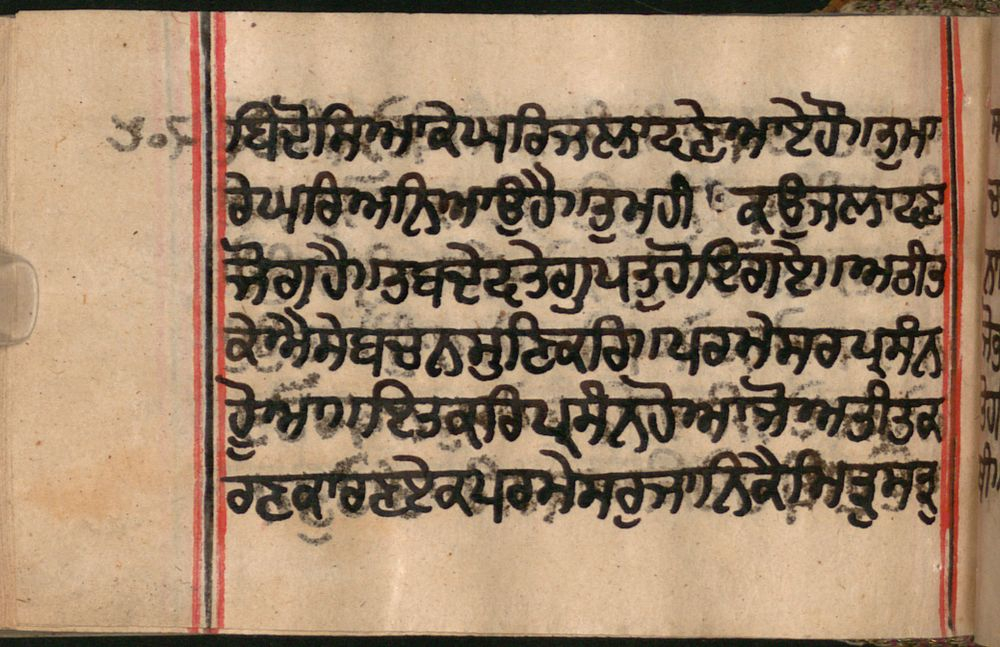 ਬਿੰਦੋਸਿਆਕੇਘਰਿਜਲਾਵਣੇਆਏਹੈ॥ਤੁਮਾ
ਰੇਘਰਿਅਨਿਆਉਹੈ॥ਤੁਮਹੀ ਕਉਜਲਾਵਣਾ
ਜੋਗਹੈ॥ਤਬਦੇਵਤੇਗੁਪਤੁਹੋਇਗਏ॥ਅਤੀਤ
ਕੇਐਸੇਬਚਨਸੁਣਿਕਰਿ॥ਪਰਮੇਸਰਪ੍ਰਸੰਨ
ਹੂੋਆ॥ਇਤਕਰਿਪ੍ਰਸੰਨਹੋਆਜੋਅਤੀਤਕ
ਰਣਕਾਰਣਏਕਪਰਮੇਸਰੁਜਾਨਿਕੈਮਿਤ੍ਰਸਤ੍ਰੁ